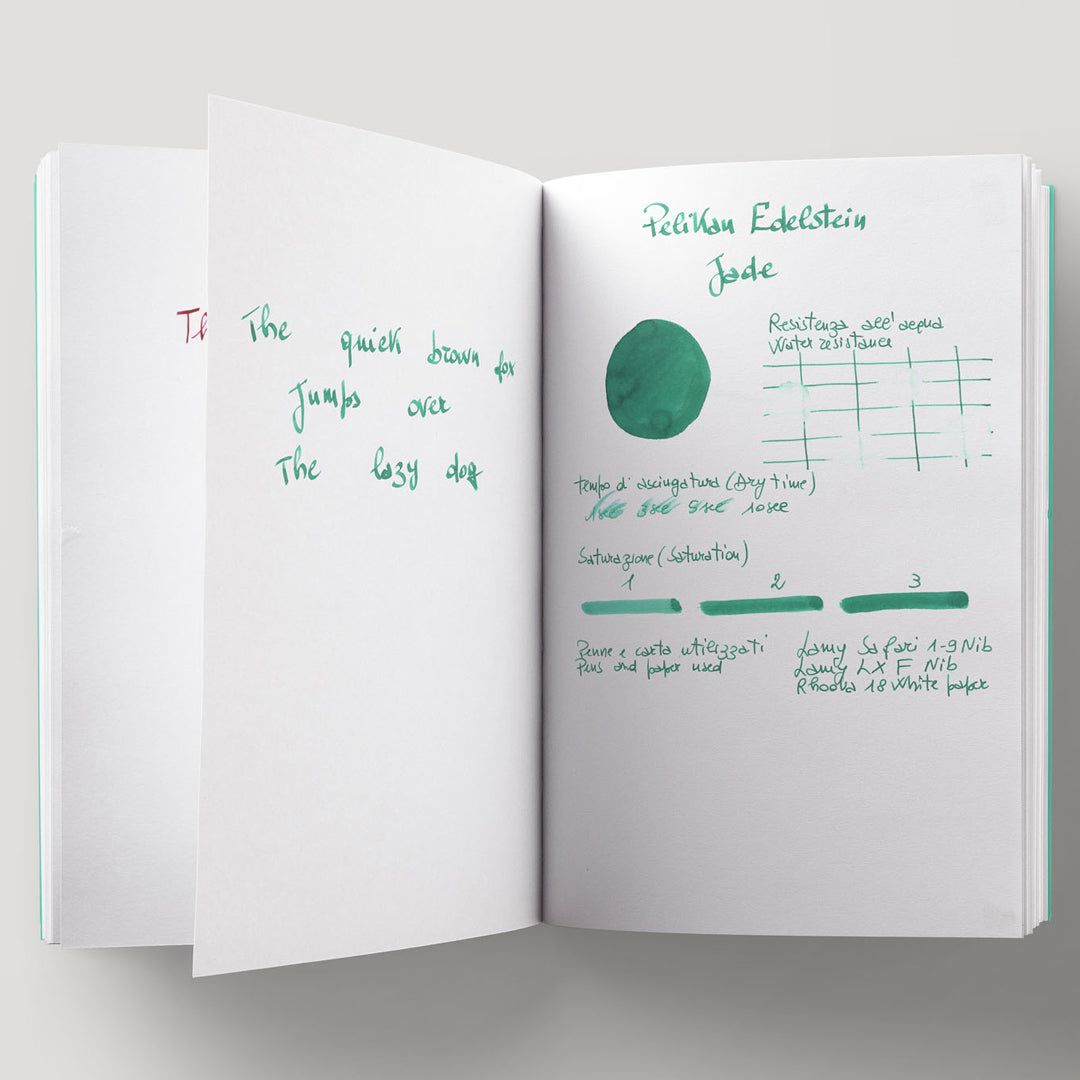 Th
The quick brown fox
Jumps over
The lazy dog
Pelikan Edelstein
Jade
Resistenza all'acqua
Water resistance
tempo d'asciugatura (Dry time)
1sec 3sec 9sec 10sec
Saturazione (Saturation)
1 2 3
Penne e carta utilizzati
Pens and paper used
Lamy Safari 1-9 Nib
Lamy LX F Nib
Rhodia 18 White paper